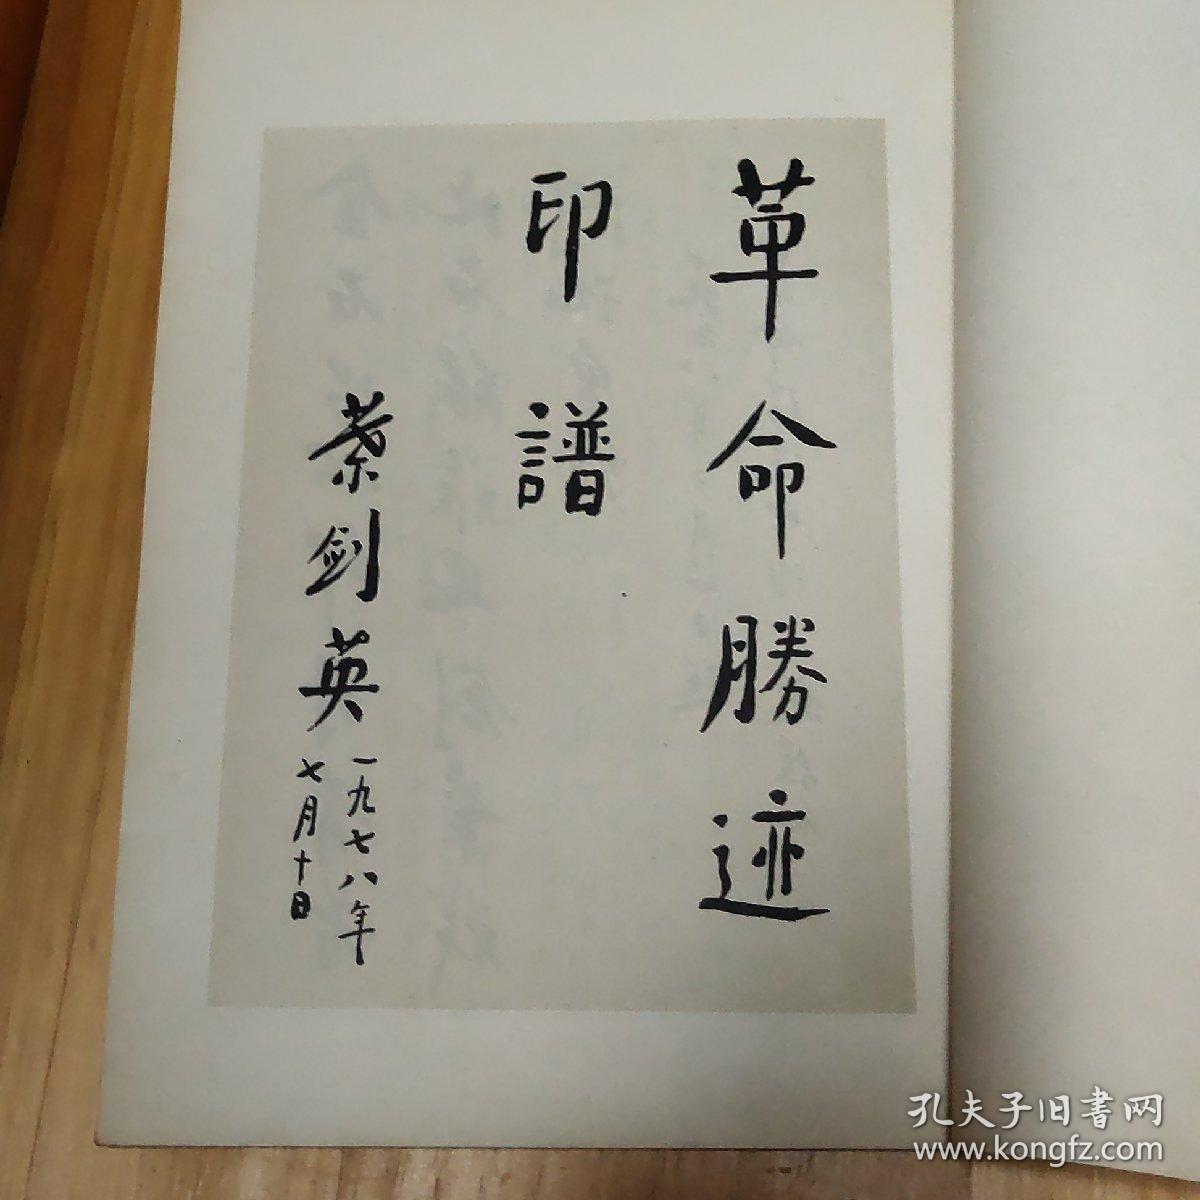 革命勝迹
印譜
葉剑英
一九七八年
七月十日
孔夫子旧書网
www.kongfz.com